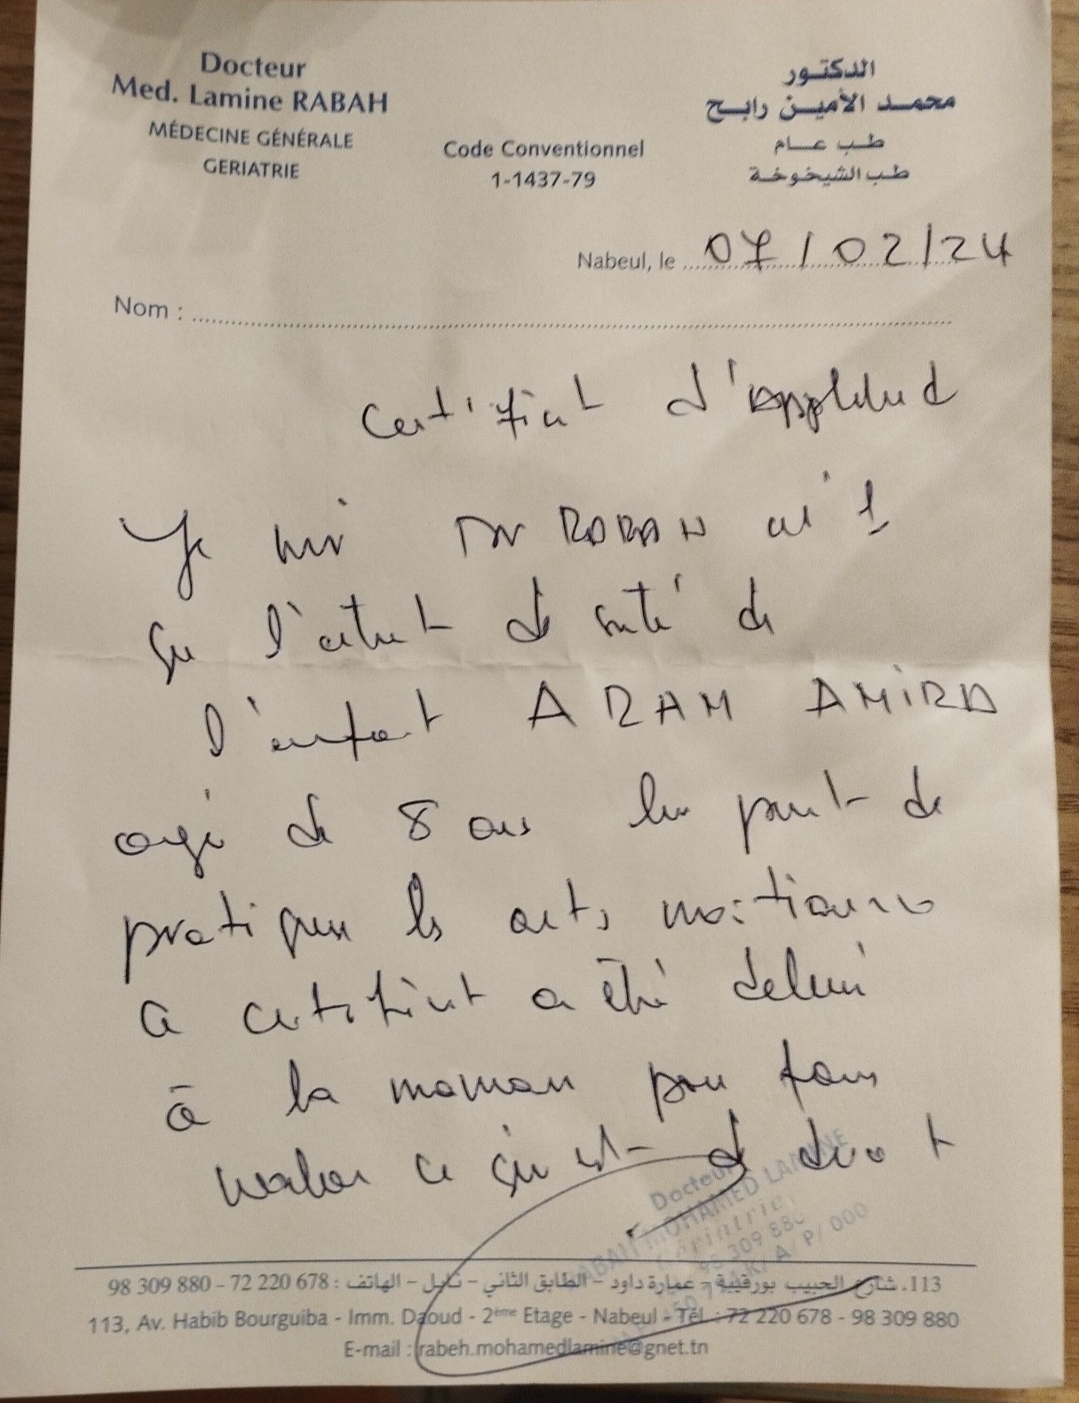 Docteur
Med. Lamine RABAH
MÉDECINE GÉNÉRALE
GERIATRIE
Code Conventionnel
1-1437-79
الدكتور
محمد الأمين رابح
طب عام
طب الشيخوخة
Nabeul, le 07/02/24
Nom :
Certificat d'
Je Dr RABAH
que l'état de santé de
l'enfant ARAM AMIRA
agé de 8 ans lui permet de
pratiquer les arts martiaux
Ce certificat a été délivré
à la maman pour faire
valoir ce qui est de droit
Docteur
RABAH MOHAMED LAMINE
Gériatrie
98 309 880
113، شارع الحبيب بورقيبة - عمارة داود - الطابق الثاني - نابل - الهاتف : 72 220 678 - 98 309 880
113, Av. Habib Bourguiba - Imm. Daoud - 2ème Etage - Nabeul - Tél : 72 220 678 - 98 309 880
E-mail : rabeh.mohamedlamine@gnet.tn